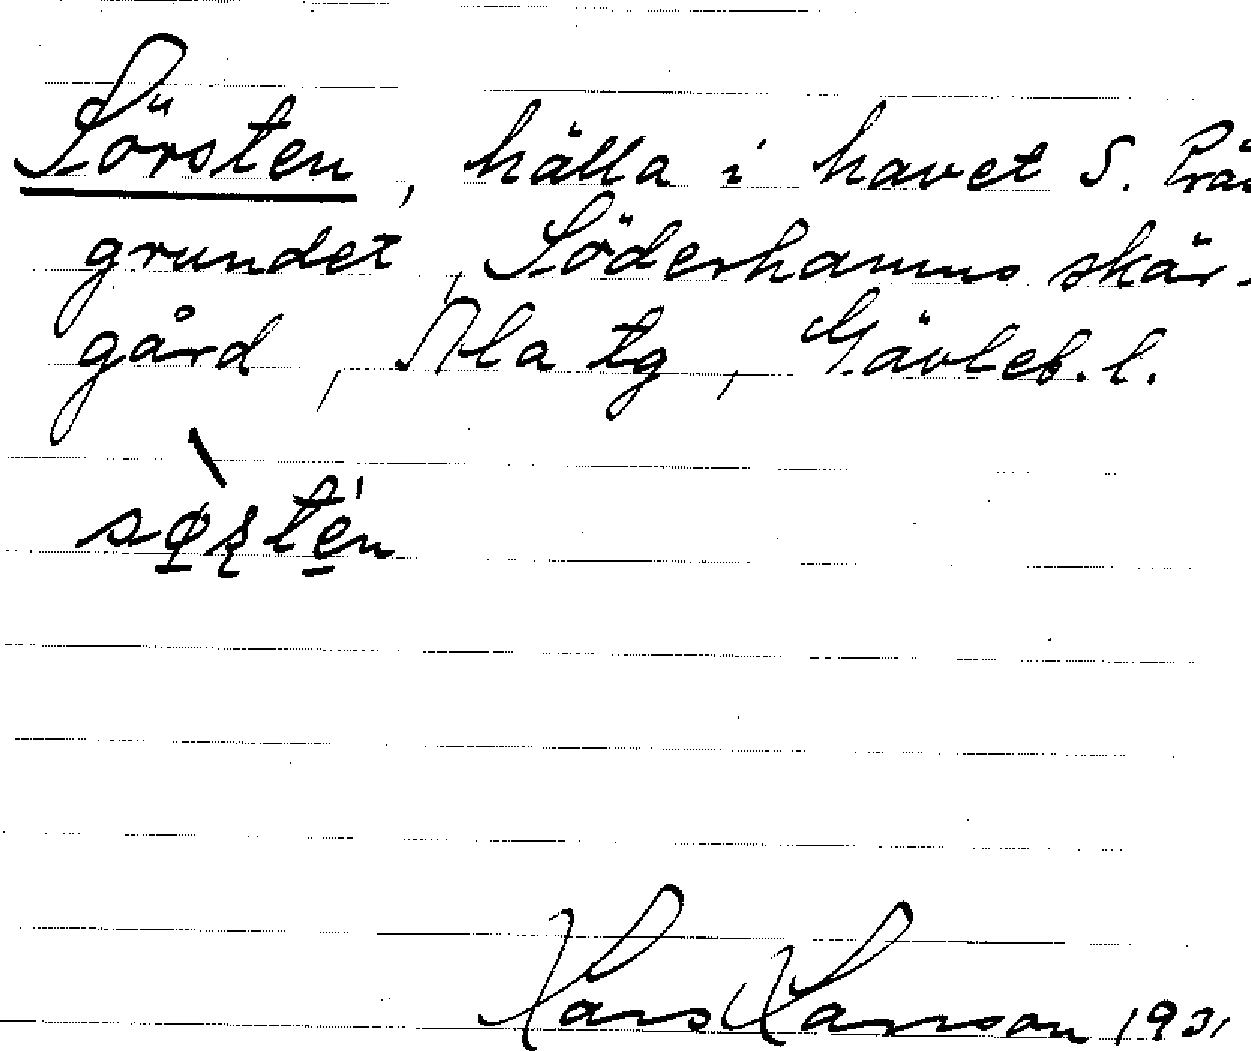 Sörsten, hälla i havet S. Prä
grundet, Söderhamns skär-
gård, Ala tg, Gävleb. l.
Hans Hanson 1931